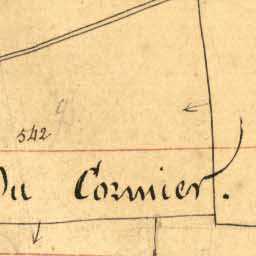 542
Du Cormier.